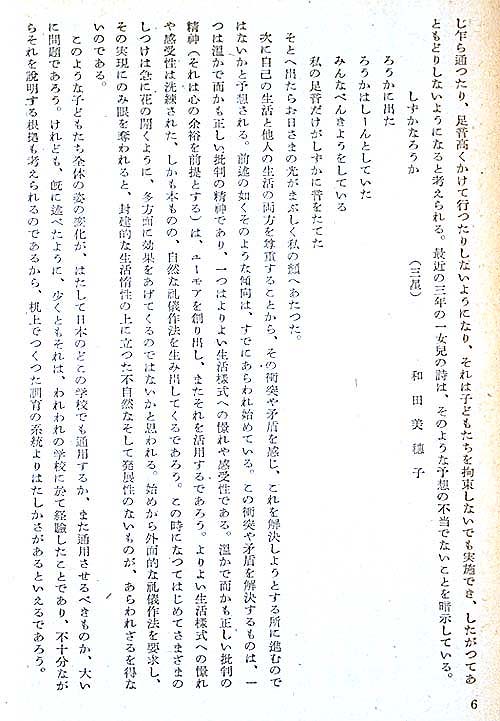 じ乍ら通つたり、足音高くかけて行つたりしないようになり、それは子どもたちを拘束しないでも実施でき、したがつてあ
ともどりしないようになると考えられる。最近の三年の一女兒の詩は、そのような予想の不当でないことを暗示している。
しずかなろうか
(三星) 和田美穗子
ろうかに出た
ろうかはしーんとしていた
みんなべんきようをしている
私の足音だけがしずかに音をたてた
そとへ出たらお日さまの光がまぶしく私の顔へあたつた。
次に自己の生活と他人の生活の両方を尊重することから、その衝突や矛盾を感じ、これを解決しようとする所に進むので
はないかと予想される。前述の如くそのような傾向は、すでにあらわれ始めている。この衝突や矛盾を解決するものは、一
つは温かで而かも正しい批判の精神であり、一つはよりよい生活様式への憬れや感受性である。温かで而かも正しい批判の
精神(それは心の余裕を前提とする)は、ユーモアを創り出し、またそれを活用するであろう。よりよい生活様式への憬れ
や感受性は洗練された、しかも本ものの、自然な礼儀作法を生み出してくるであろう。この時になつてはじめてさまざまの
しつけは急に花の開くように、多方面に効果をあげてくるのではないかと思われる。始めから外面的な礼儀作法を要求し、
その実現にのみ眼を奪われると、封建的な生活惰性の上に立つた不自然なそして発展性のないものが、あらわれざるを得な
いのである。
このような子どもたち全体の姿の変化が、はたして日本のどこの学校でも通用するか、また通用させるべきものか、大い
に問題であろう。けれども、既に述べたように、少くともそれは、われわれの学校に於て経験したことであり、不十分なが
らそれを説明する根拠も考えられるのであるから、机上でつくつた訓育の系統よりはたしかさがあるといえるであろう。
6